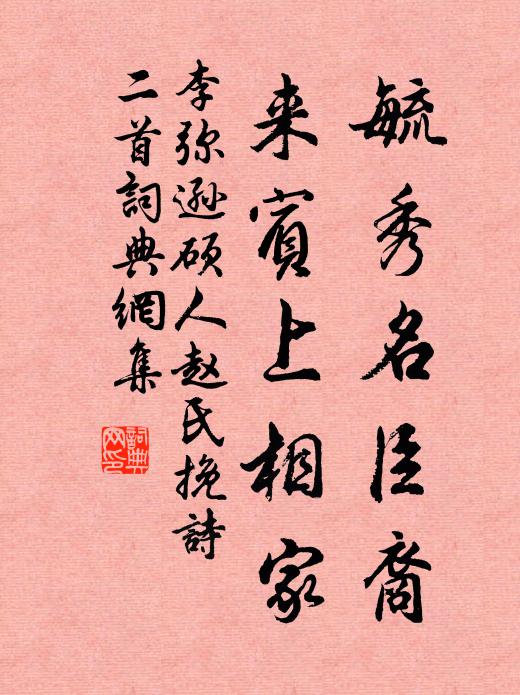 毓秀名臣裔
来賓上相家
李弥遜硕人赵氏挽詩
二首詞典網集
詞典网印